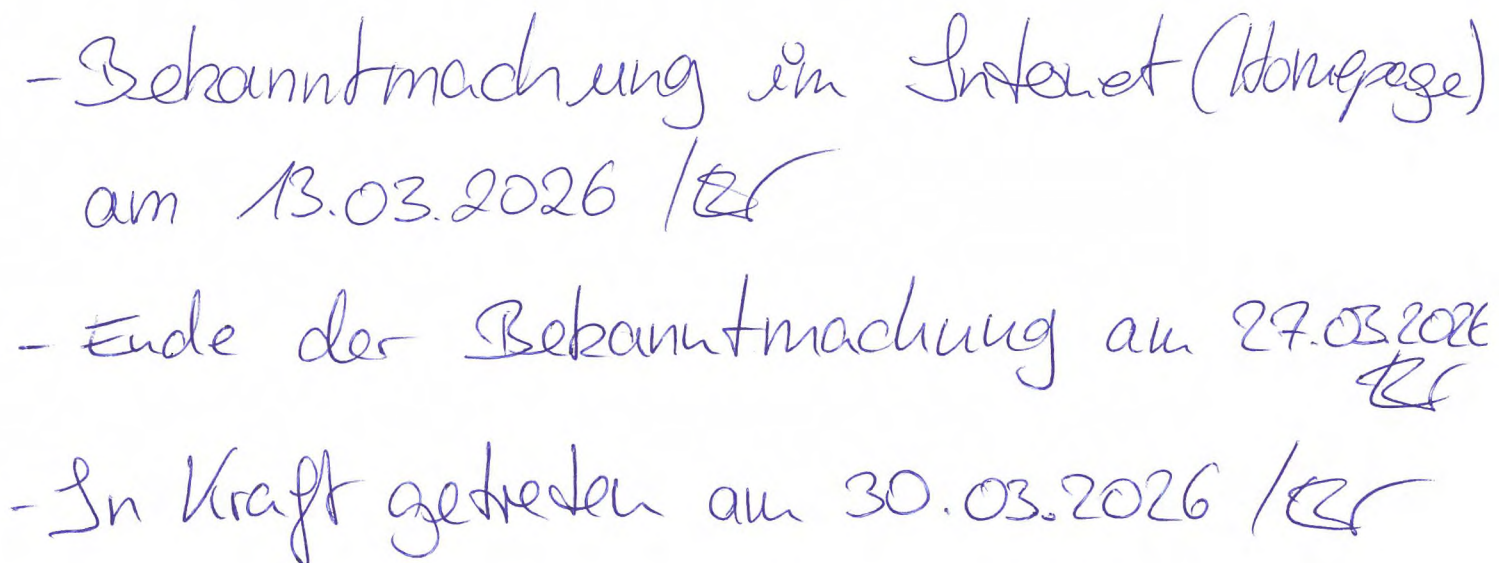 - Bekanntmachung im Internet (Homepage)
am 13.03.2026 /
- Ende der Bekanntmachung am 27.03.2026
- In Kraft getreten am 30.03.2026 /